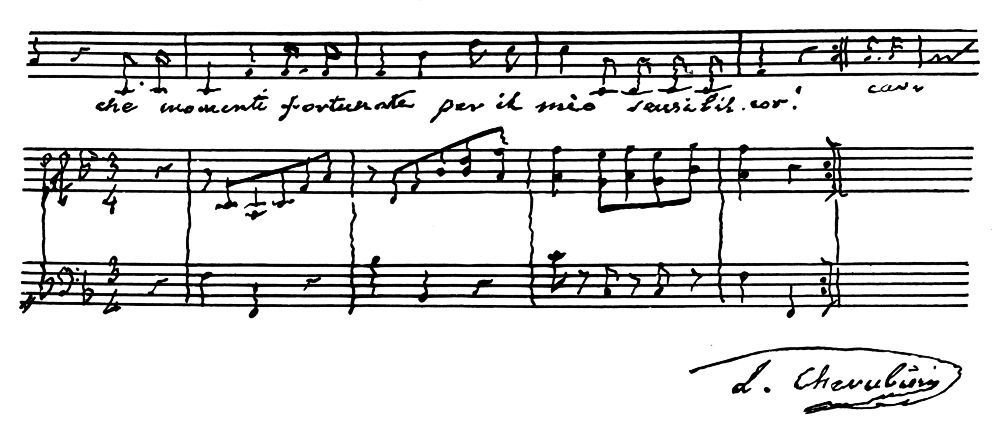 che momenti fortunate per il mio sensibil cor!
3 4
3 4
L. Cherubini